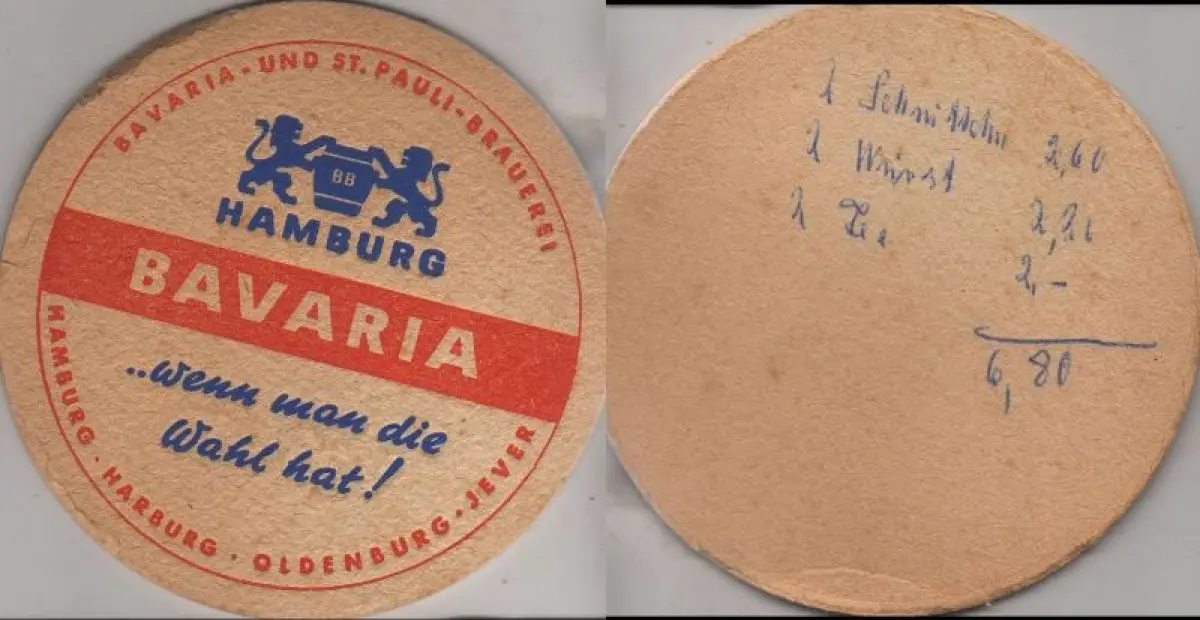 BAVARIA - UND ST. PAULI - BRAUEREI
BB
HAMBURG
BAVARIA
..wenn man die
Wahl hat!
HAMBURG · HARBURG · OLDENBURG · JEVER
2 2,60
2 Wurst
2 Tee 2,20
2,-
6,80